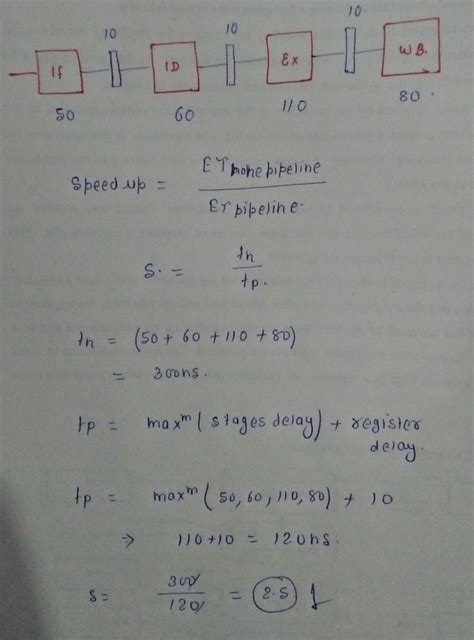 10 10 10
If ID Ex W.B.
50 60 110 80.
Speed up = ET none pipeline / ET pipeline.
S. = tn / tp.
tn = (50 + 60 + 110 + 80)
= 300ns.
tp = maxᵐ (stages delay) + register
delay.
tp = maxᵐ (50, 60, 110, 80) + 10
⇒ 110+10 = 120ns.
S= 300 / 120 = 2.5